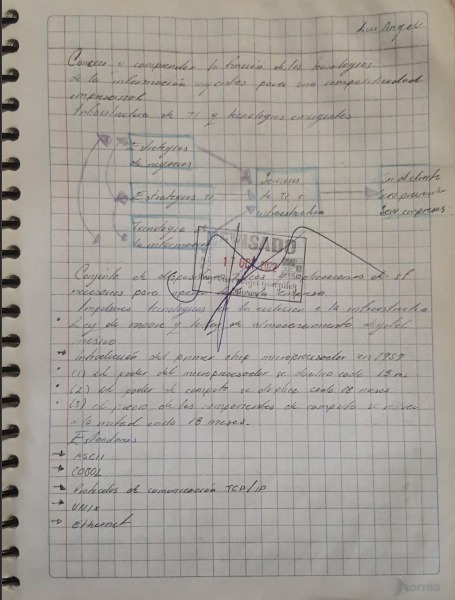 Luis Angel
Conocer o comprender la función de las tecnologías
de la información vigentes para una competitividad
empresarial
Infraestructura de TI y tecnologías emergentes
Estrategias
de negocios
Estrategias TI
Tecnología de
la información
Servicios
de TI e
infraestructura
REVISADO
17 OCT 2022
Conjunto de dispositivos aplicaciones de sf
necesarios para empresa
Impulsores tecnológicos de la evolución a la infraestructura
• Ley de moore y la ley de almacenamiento digital
masivo
→ Introducción del primer chip microprocesador en 1959
• (1) el poder del microprocesador se duplica cada 18 ms
• (2) el poder de computo se duplica cada 18 meses
• (3) el precio de los componentes de computo se reduce
a la mitad cada 18 meses.
Estandares
→ ASCII
→ COBOL
→ Protocolos de comunicación TCP/IP
→ UNIX
→ Ethernet
Norma